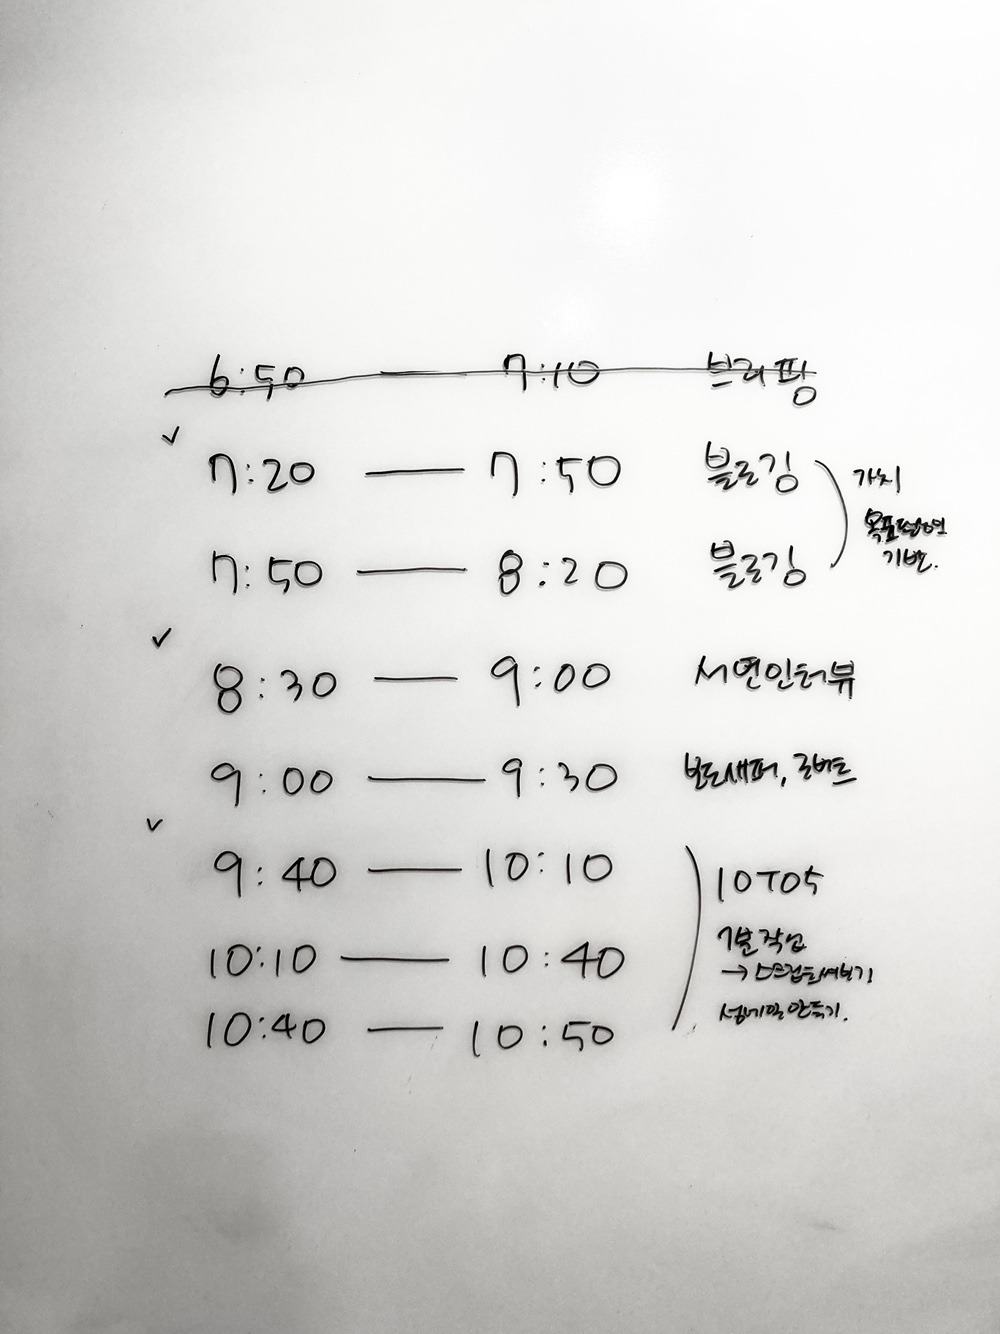 6:50 — 7:10 브리핑
✓
7:20 — 7:50 블로깅
가치
7:50 — 8:20 블로깅
기반.
✓
8:30 — 9:00 서연인터뷰
9:00 — 9:30 보도새퍼, 로버트
✓
9:40 — 10:10
10TO5
10:10 — 10:40
7분 작업
→
10:40 — 10:50
썸네일 만들기.